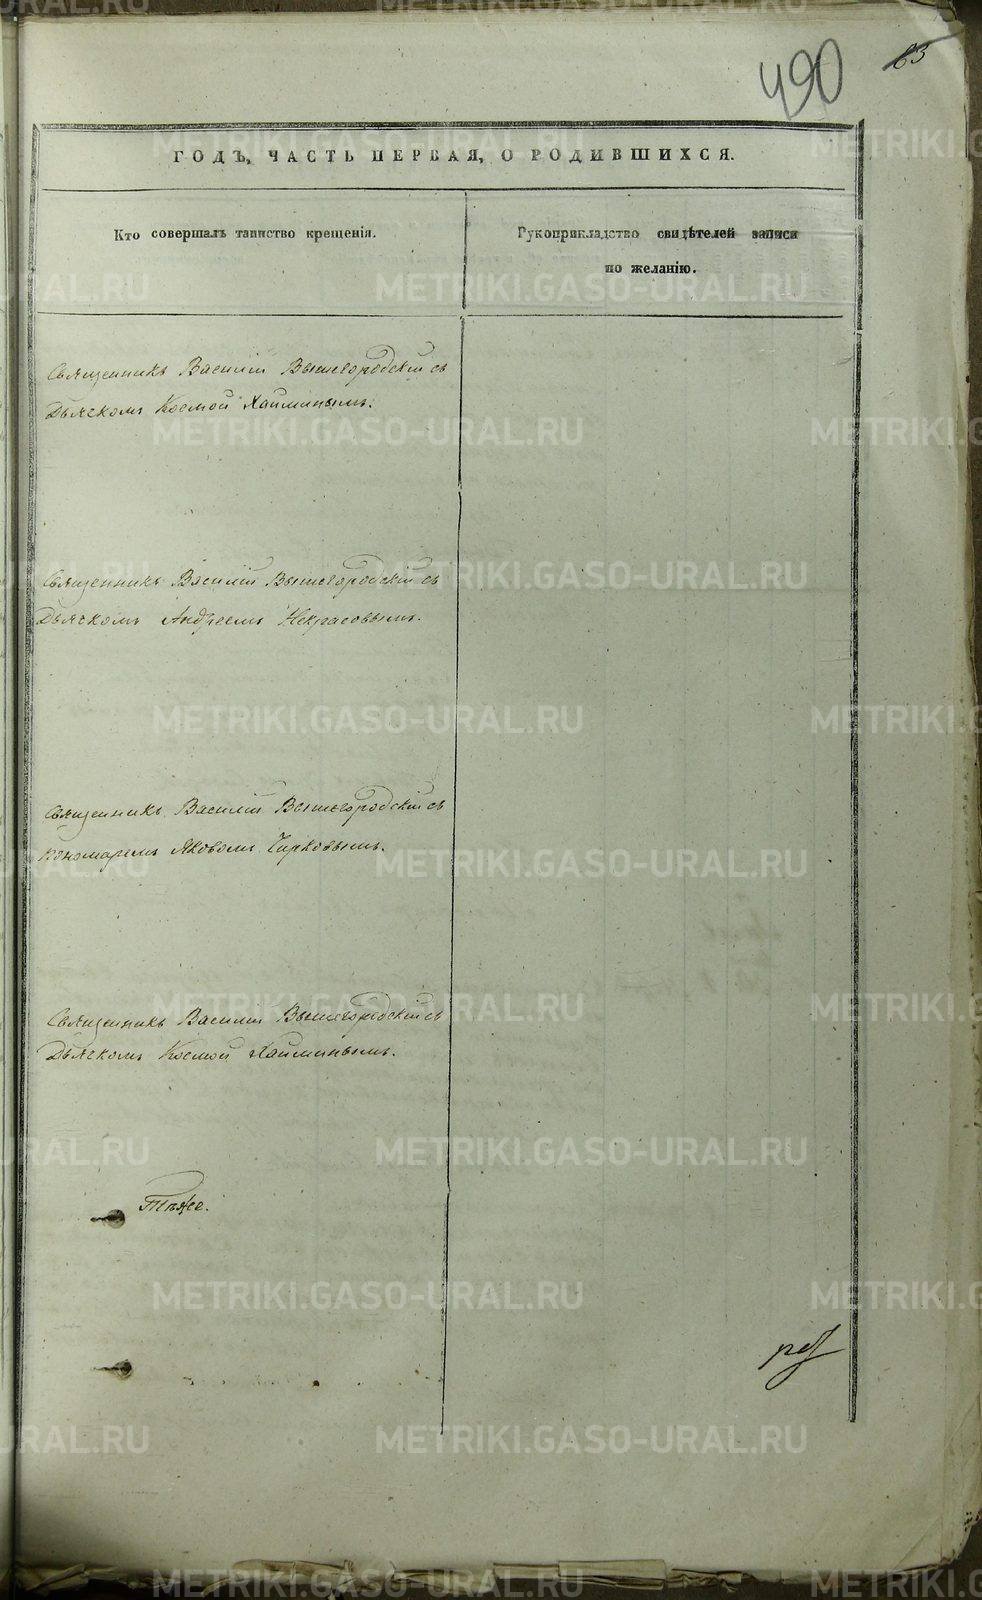 490
63
ГОДЪ, ЧАСТЬ ПЕРВАЯ, О РОДИВШИХСЯ.
Кто совершалъ таинство крещенія.
Рукоприкладство свидѣтелей записи
по желанію.
Священникъ Василій Вышегородскій съ
Дьячкомъ Космой Хайминымъ.
Священникъ Василій Вышегородскій съ
Дьячкомъ Андреемъ Некрасовымъ.
Священникъ Василій Вышегородскій съ
пономаремъ Яковомъ Чирковымъ.
Священникъ Василій Вышегородскій съ
Дьячкомъ Космой Хайминымъ.
Тѣже.
METRIKI.GASO-URAL.RU